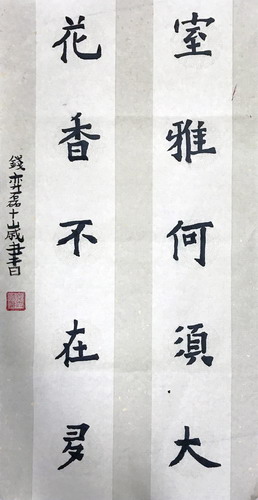 室雅何須大
花香不在多
錢弈磊十歲書